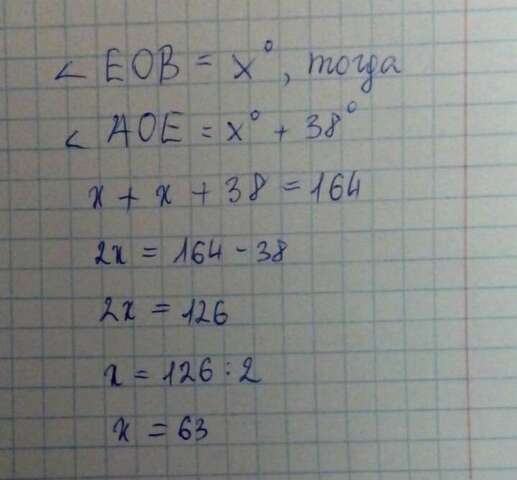 ∠ EOB = x°, тогда
∠ AOE = x° + 38°
x + x + 38 = 164
2x = 164 - 38
2x = 126
x = 126 : 2
x = 63